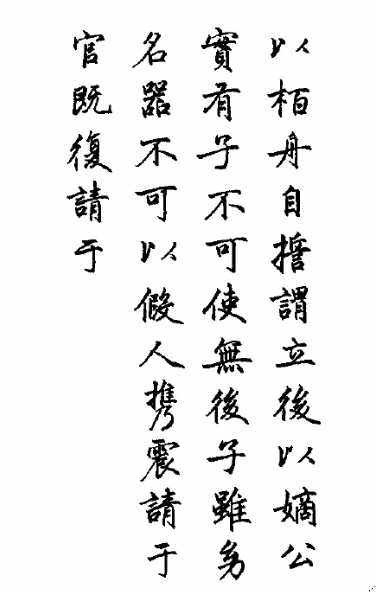 以栢舟自擔謂立後以嫡公
實有子不可使無後子雖㓜
名器不可以假人携震請于
官既復請于